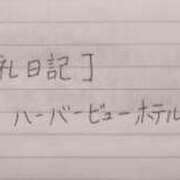 礼日記]
ハーバービューホテル